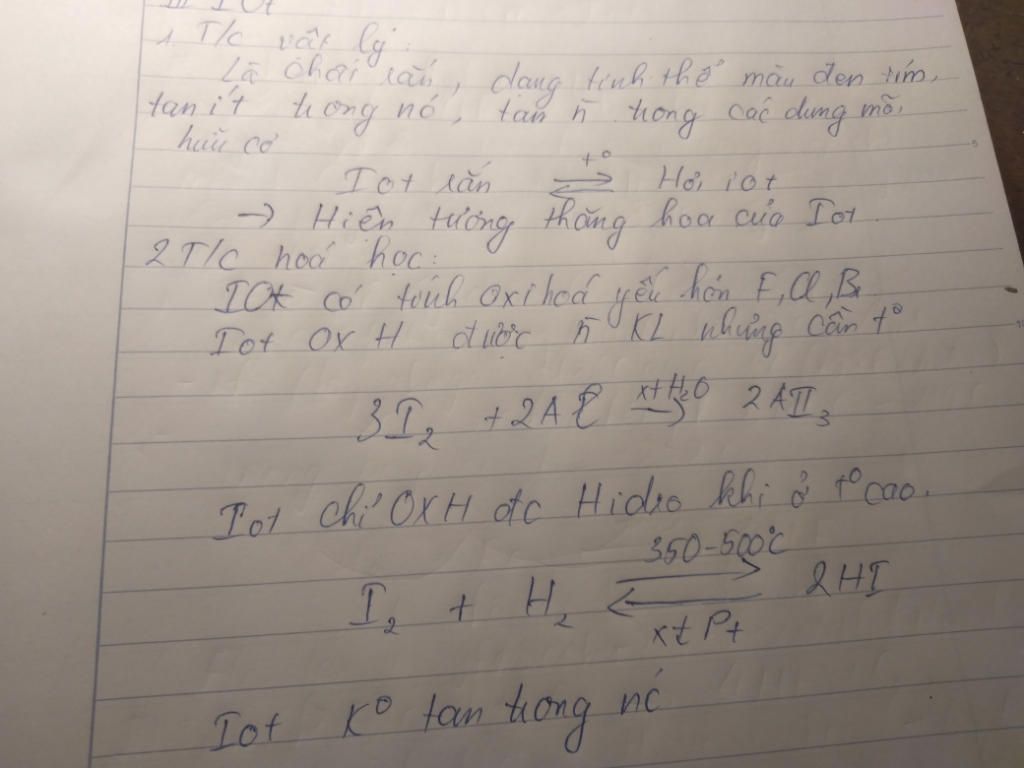 III Iot
1 T/c vật lý:
Là chất rắn, dạng tinh thể màu đen tím,
tan ít trong nó, tan ñ trong các dung môi
hữu cơ
Iot rắn ⇌ Hơi iot
t°
→ Hiện tượng thăng hoa của Iot.
2 T/c hoá học:
IOt có tính oxi hoá yếu hơn F, Cl, Br
Iot OXH được ñ KL nhưng cần t°
3I₂ + 2Al → 2AlI₃
xt H₂O
Iot chỉ OXH đc Hidro khi ở t° cao.
350-500°C
I₂ + H₂ ⇌ 2HI
xt Pt
Iot K° tan trong nć